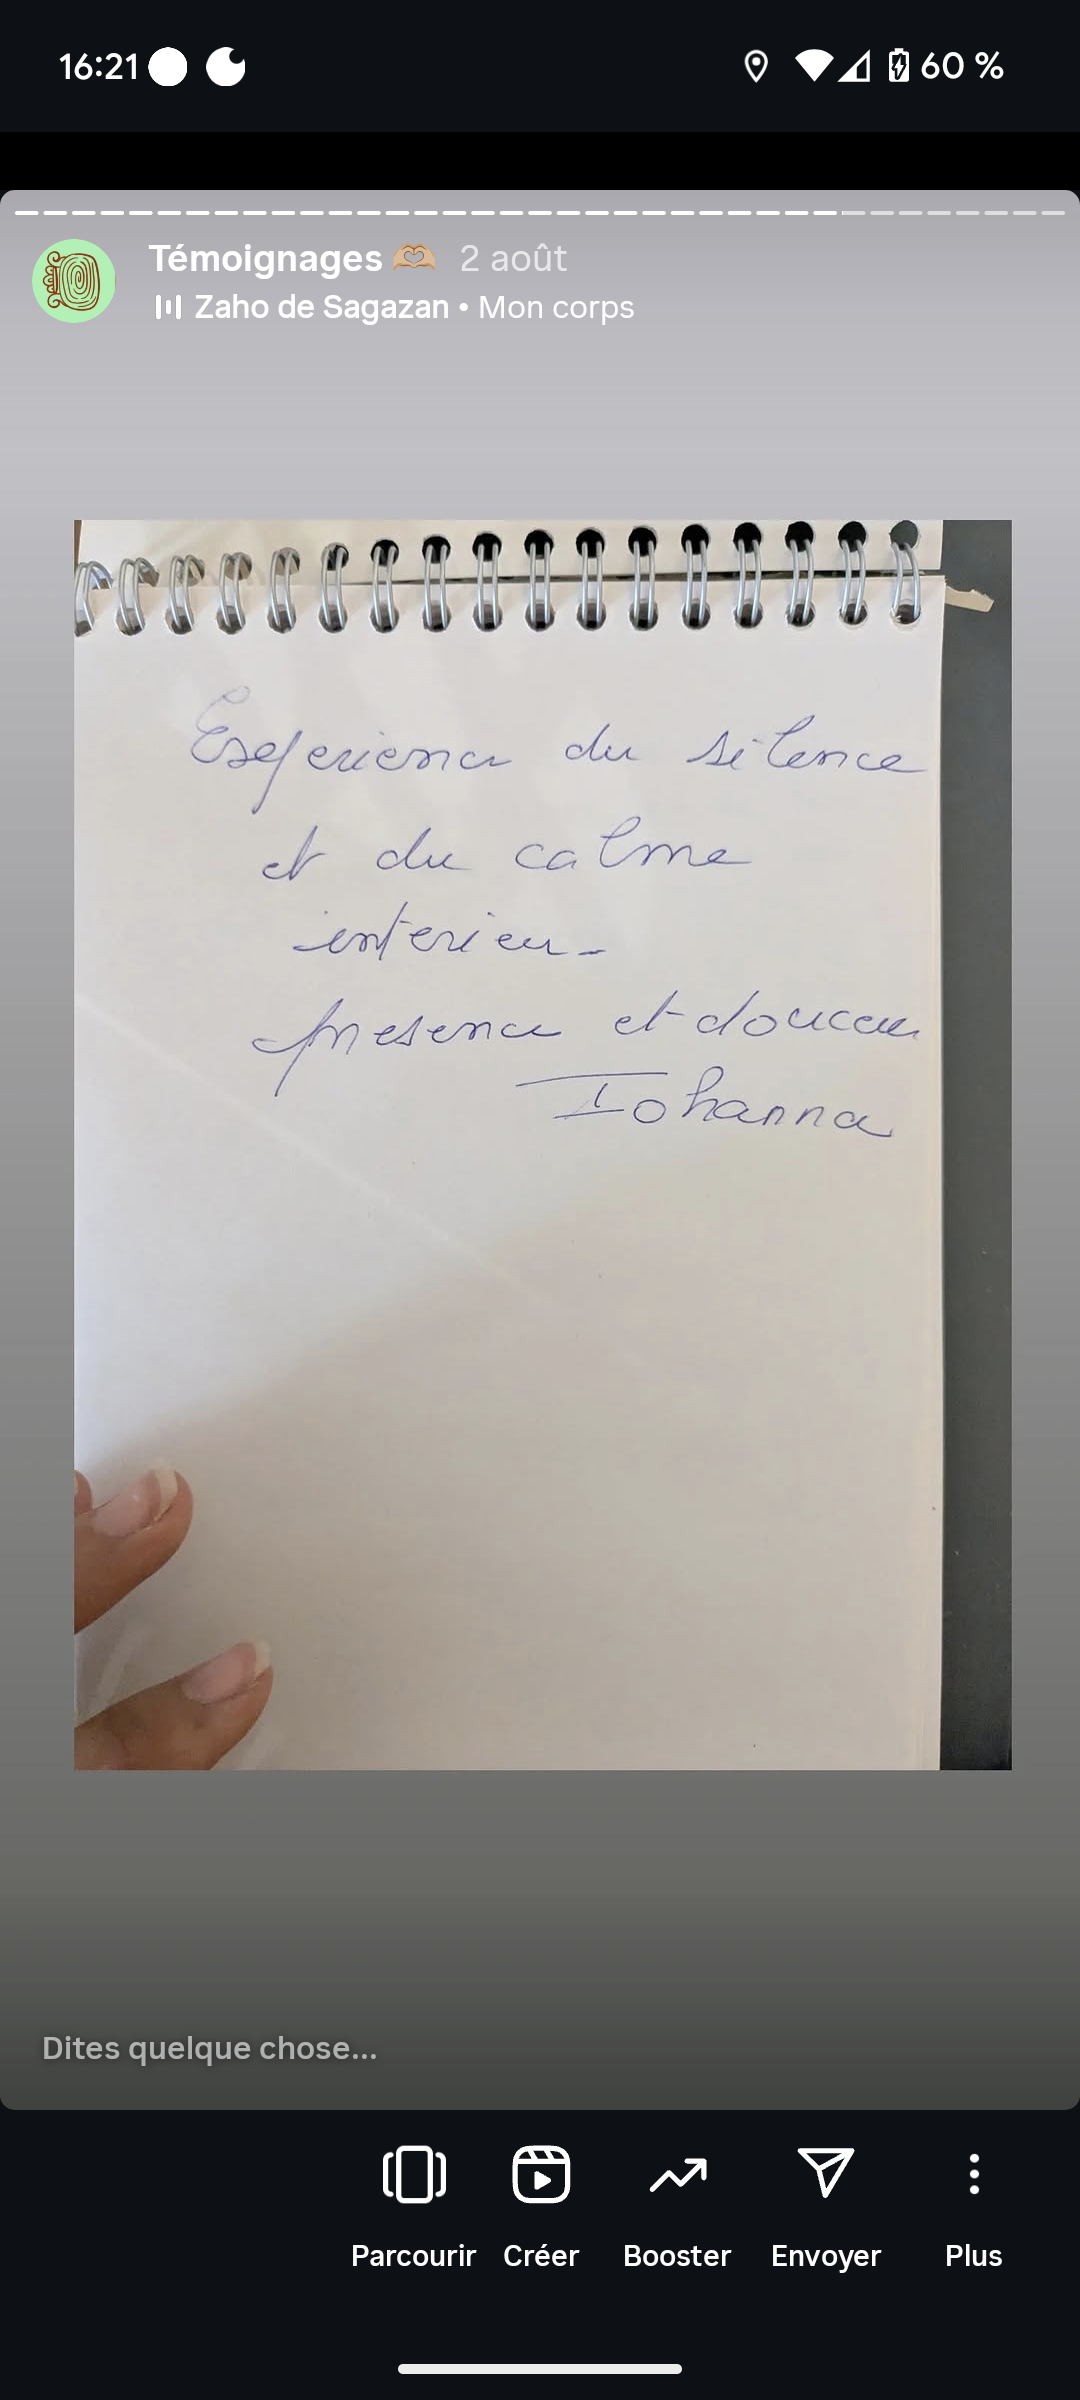 16:21 60 %
Témoignages 🫶🏼 2 août
Zaho de Sagazan • Mon corps
Experience du silence
et du calme
interieur
presence et douceur
Iohanna
Dites quelque chose...
Parcourir Créer Booster Envoyer Plus